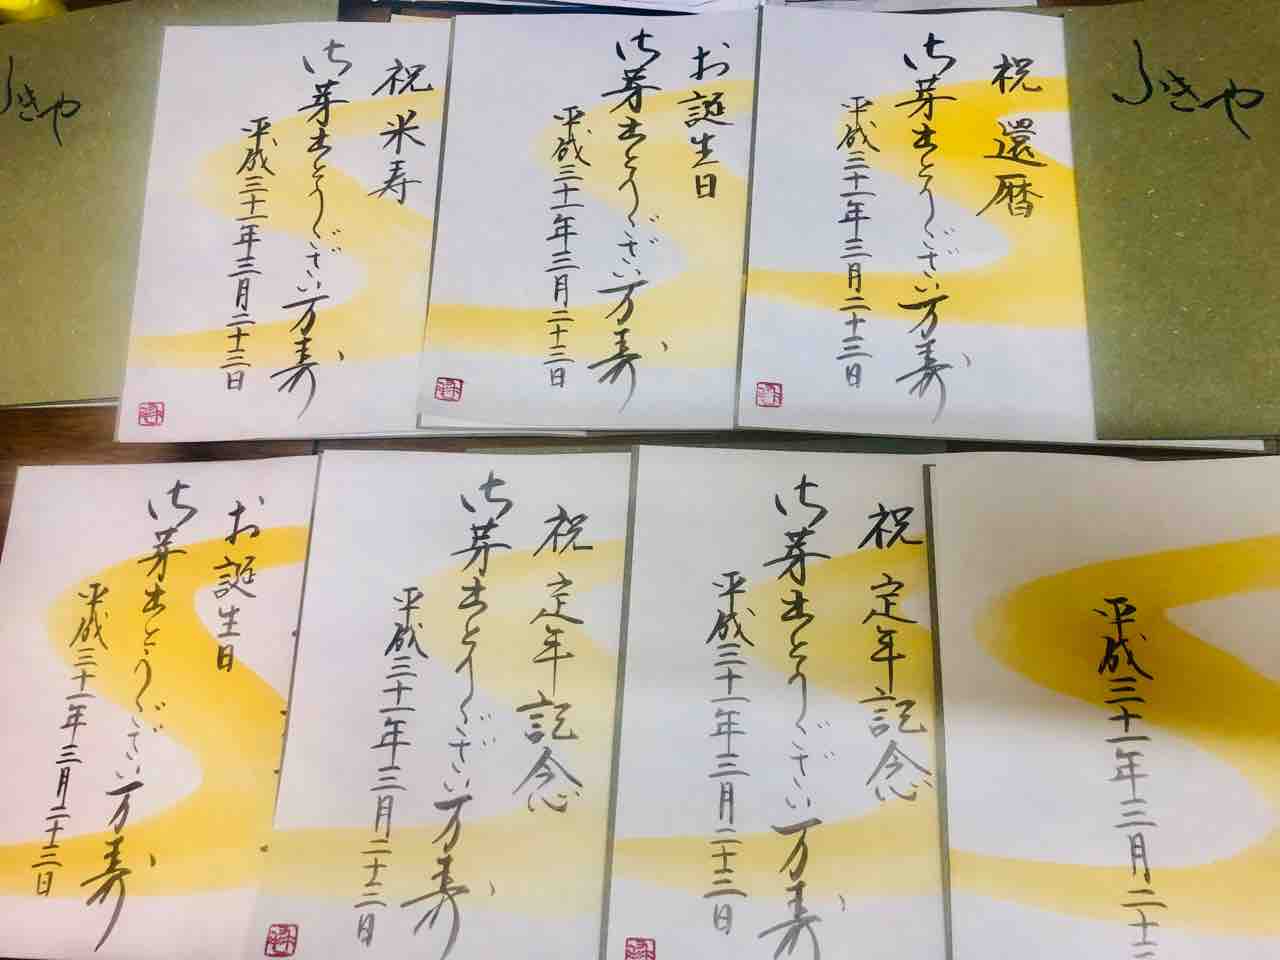 ふきや
祝米寿
御芽出とうござい万寿
平成三十一年三月二十三日
お誕生日
御芽出とうござい万寿
平成三十一年三月二十三日
祝還暦
御芽出とうござい万寿
平成三十一年三月二十三日
ふきや
お誕生日
御芽出とうござい万寿
平成三十一年三月二十三日
祝定年記念
御芽出とうござい万寿
平成三十一年三月二十三日
祝定年記念
御芽出とうござい万寿
平成三十一年三月二十三日
平成三十一年三月二十